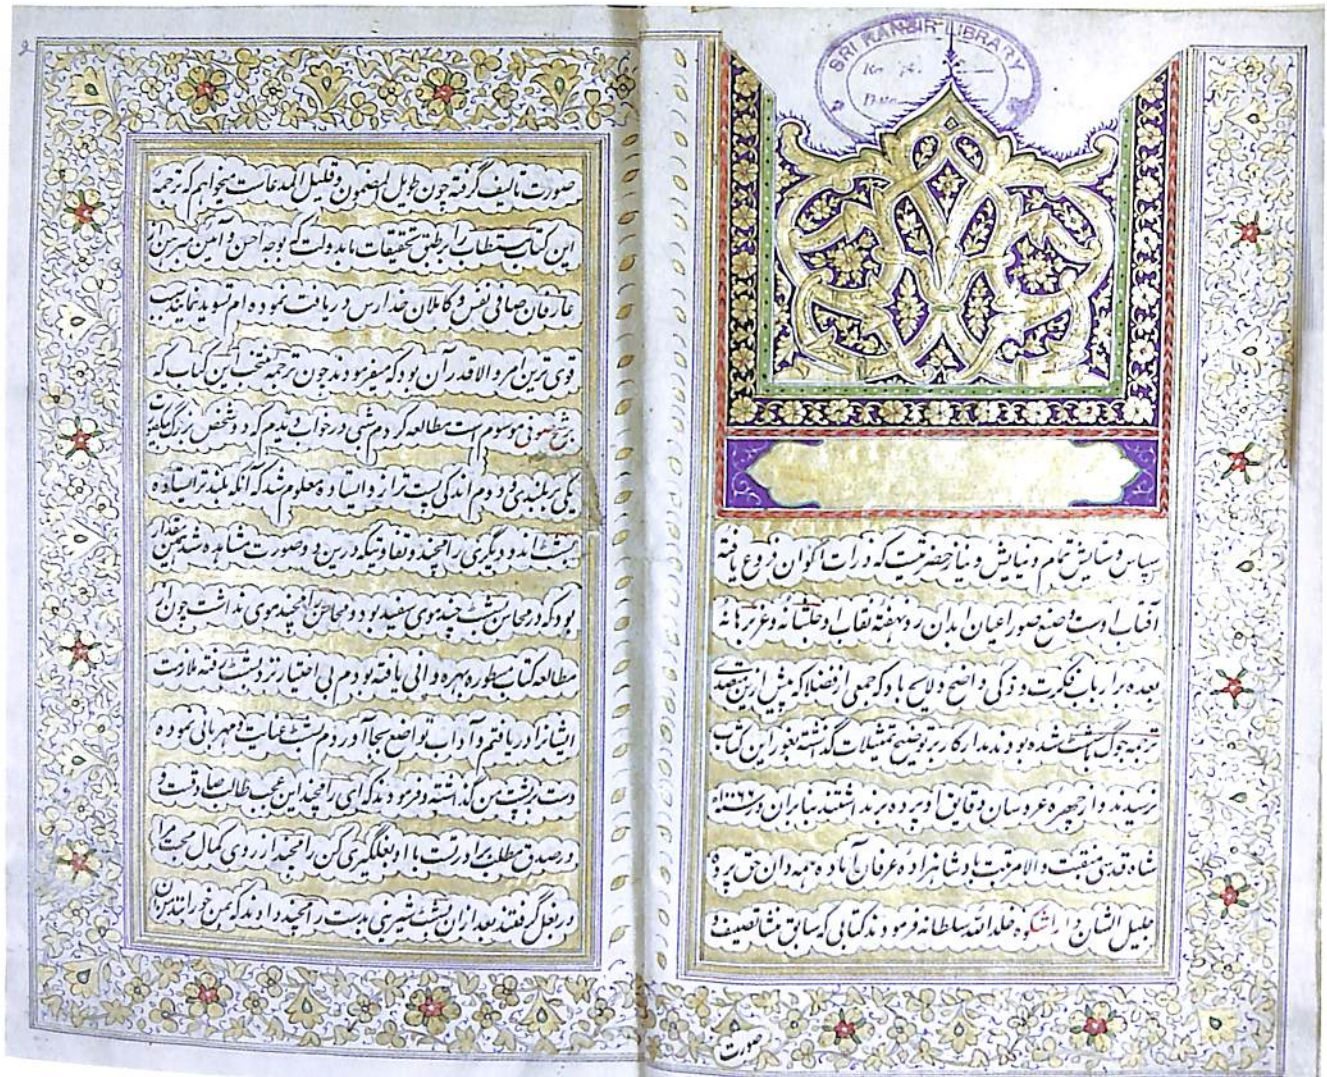 SRI RANBIR LIBRARY
No.
Date
سپاس و ستایش تمام و نیایش و نیاز حضرتیست که ذرات اکوان فروغ یافتهٔ
آفتاب اوست و اضع صور اعیان ابدان رو نهفتهٔ نقاب او جلت شانه و عز برهانه
بعده بر ارباب فکرت و ذکی واضح و لایح باد که جمعی از فضلا که پیش ازین متصدی
ترجمه جوگ باشست شده بودند مدار کار بر توضیح تمثیلات گذشته بغور این کتاب
نرسیدند و از چهرهٔ عروسان دقایق او پرده برنداشتند بنابران در سنه ۱۰۶۶
شاه قدسی منقبت والا مرتبت بادشاهزادهٔ عرفان آباد همه دان حق پژوه
جلیل الشان دارا شکوه خلد الله سلطانه فرمودند کتابی که سابق منشا تصنیف و
صورت
صورت تالیف گرفته چون طویل المضمون و قلیل المدعاست میخواهم که ترجمهٔ
این کتاب مستطاب را بطبق تحقیقات ما بدولت که بوجه احسن و آئین مبرهن از
عارفان صافی نفس و کاملان خدارس دریافت نموده ام تسوید نمایند سبب
قوی ترین امر والا قدر آن بود که میفرمودند چون ترجمهٔ منتخب این کتاب که
بشیخ صوفی موسوم است مطالعه کردم شبی در خواب دیدم که دو شخص بزرگ نیک هیئت
یکی بر بلندی و دوم اندکی پست تر ازو ایستاده معلوم شد که آنکه بلندتر ایستاده
بسشت اند و دیگری رامچند و تفاوتیکه درین دو صورت مشاهده شد همین مقدار
بود که در محاسن بسشت چند موی سفید بود و محاسن رامچند موی نداشت چون از
مطالعه کتاب مسطوره بهره وافی یافته بودم بی اختیار نزد بسشت رفته ملازمت
ایشانرا دریافتم و آداب تواضع بجا آوردم بسشت عنایت و مهربانی نموده
دست بر پشت من گذاشته و فرمودند که ای رامچند این محب طالب صادقست و
در صدق مطلب برادر تست با او بغلگیری کن رامچند از روی کمال محبت مرا
در بغل گرفتند بعد ازان بسشت شیرینی بدست رامچند دادند که بمن خوراند من آن